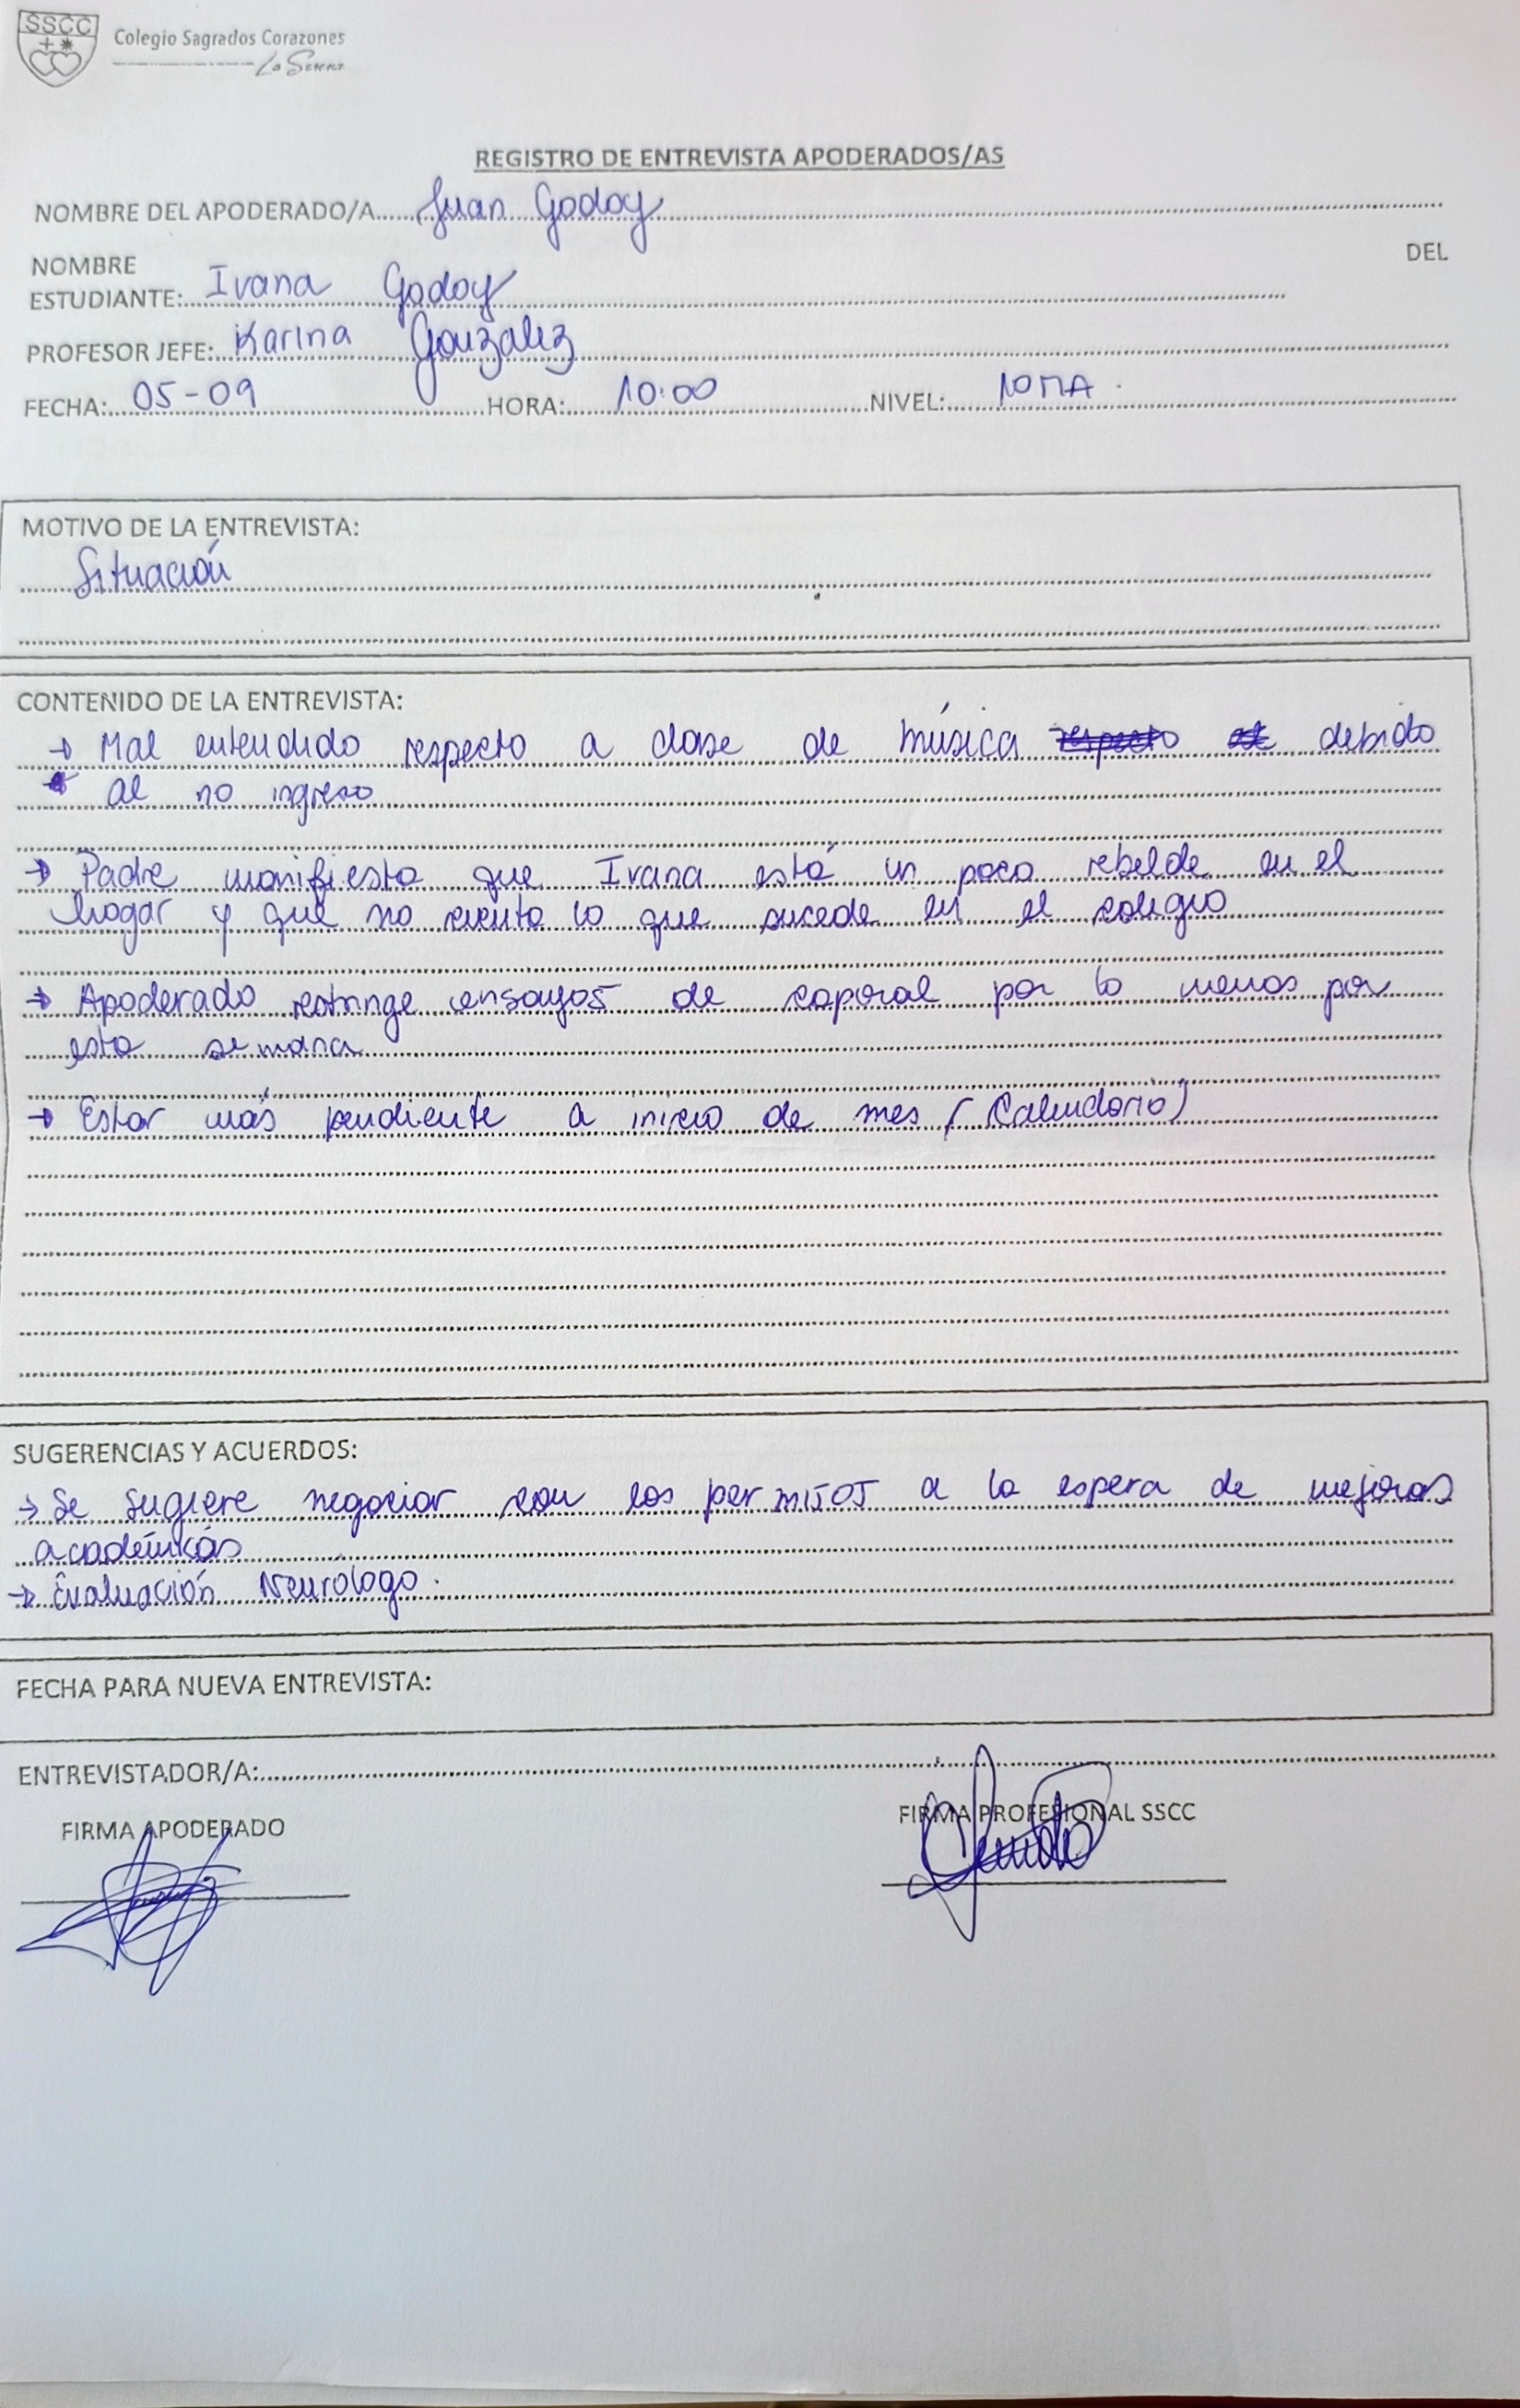 SSCC
Colegio Sagrados Corazones
La Serena
REGISTRO DE ENTREVISTA APODERADOS/AS
NOMBRE DEL APODERADO/A Juan Godoy
NOMBRE DEL
ESTUDIANTE: Ivana Godoy
PROFESOR JEFE: Karina Gonzalez
FECHA: 05-09 HORA: 10:00 NIVEL: 1ºMA.
MOTIVO DE LA ENTREVISTA:
Situación
CONTENIDO DE LA ENTREVISTA:
→ Mal entendido respecto a clase de música respecto debido
al no ingreso
→ Padre manifiesta que Ivana está un poco rebelde en el
hogar y que no cuenta lo que sucede en el colegio
→ Apoderado restringe ensayos de caporal por lo menos por
esta semana
→ Estar más pendiente a inicio de mes (Calendario)
SUGERENCIAS Y ACUERDOS:
→ Se sugiere negociar con los permisos a la espera de mejoras
académicas
→ Evaluación Neurólogo.
FECHA PARA NUEVA ENTREVISTA:
ENTREVISTADOR/A:
FIRMA APODERADO FIRMA PROFESIONAL SSCC